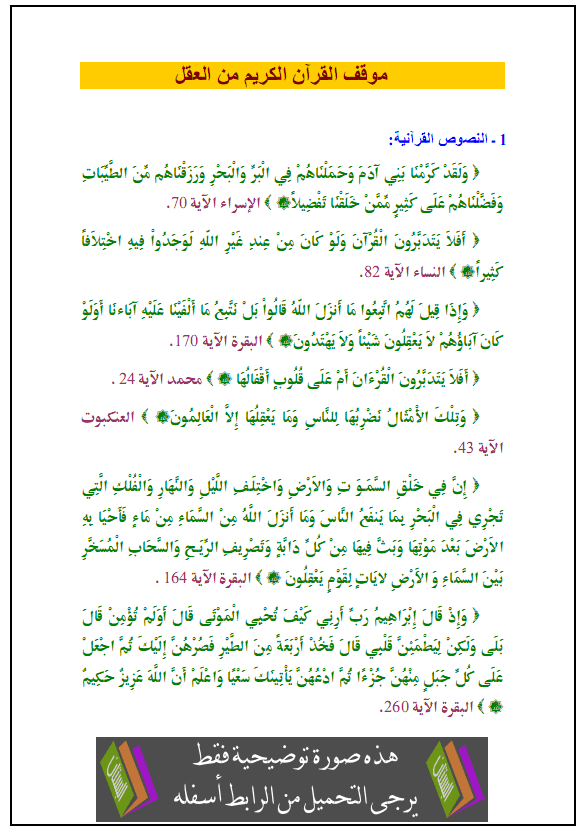 موقف القرآن الكريم من العقل
1 ـ النصوص القرآنية:
﴿ وَلَقَدْ كَرَّمْنَا بَنِي آدَمَ وَحَمَلْنَاهُمْ فِي الْبَرِّ وَالْبَحْرِ وَرَزَقْنَاهُم مِّنَ الطَّيِّبَاتِ
وَفَضَّلْنَاهُمْ عَلَى كَثِيرٍ مِّمَّنْ خَلَقْنَا تَفْضِيلاً ﴾ الإسراء الآية 70.
﴿ أَفَلاَ يَتَدَبَّرُونَ الْقُرْآنَ وَلَوْ كَانَ مِنْ عِندِ غَيْرِ اللَّهِ لَوَجَدُواْ فِيهِ اخْتِلاَفاً
كَثِيراً ﴾ النساء الآية 82.
﴿ وَإِذَا قِيلَ لَهُمُ اتَّبِعُوا مَا أَنزَلَ اللَّهُ قَالُواْ بَلْ نَتَّبِعُ مَا أَلْفَيْنَا عَلَيْهِ آبَاءنَا أَوَلَوْ
كَانَ آبَاؤُهُمْ لاَ يَعْقِلُونَ شَيْئاً وَلاَ يَهْتَدُونَ ﴾ البقرة الآية 170.
﴿ أَفَلاَ يَتَدَبَّرُونَ الْقُرْءَانَ أَمْ عَلَى قُلُوبٍ أَقْفَالُهَا ﴾ محمد الآية 24 .
﴿ وَتِلْكَ الأَمْثَالُ نَضْرِبُهَا لِلنَّاسِ وَمَا يَعْقِلُهَا إِلاَّ الْعَالِمُونَ ﴾ العنكبوت
الآية 43.
﴿ إِنَّ فِي خَلْقِ السَّمَوَ تِ وَالاَرْضِ وَاخْتِلَفِ اللَّيْلِ وَالنَّهَارِ وَالْفُلْكِ الَّتِي
تَجْرِي فِي الْبَحْرِ بِمَا يَنفَعُ النَّاسَ وَمَا أَنزَلَ اللَّهُ مِنَ السَّمَاءِ مِنْ مَاءٍ فَأَحْيَا بِهِ
الاَرْضَ بَعْدَ مَوْتِهَا وَبَثَّ فِيهَا مِنْ كُلِّ دَابَّةٍ وَتَصْرِيفِ الرِّيَـحِ وَالسَّحَابِ الْمُسَخَّرِ
بَيْنَ السَّمَاءِ وَ الاَرْضِ لايَاتٍ لِقَوْمٍ يَعْقِلُونَ ﴾ البقرة الآية 164 .
﴿ وَإِذْ قَالَ إِبْرَاهِيمُ رَبِّ أَرِنِي كَيْفَ تُحْيِي الْمَوْتَى قَالَ أَوَلَمْ تُؤْمِنْ قَالَ
بَلَى وَلَكِنْ لِيَطْمَئِنَّ قَلْبِي قَالَ فَخُذْ أَرْبَعَةً مِنَ الطَّيْرِ فَصُرْهُنَّ إِلَيْكَ ثُمَّ اجْعَلْ
عَلَى كُلِّ جَبَلٍ مِنْهُنَّ جُزْءًا ثُمَّ ادْعُهُنَّ يَأْتِينَكَ سَعْيًا وَاعْلَمْ أَنَّ اللَّهَ عَزِيزٌ حَكِيمٌ
﴾ البقرة الآية 260.
هذه صورة توضيحية فقط
يرجى التحميل من الرابط أسفله